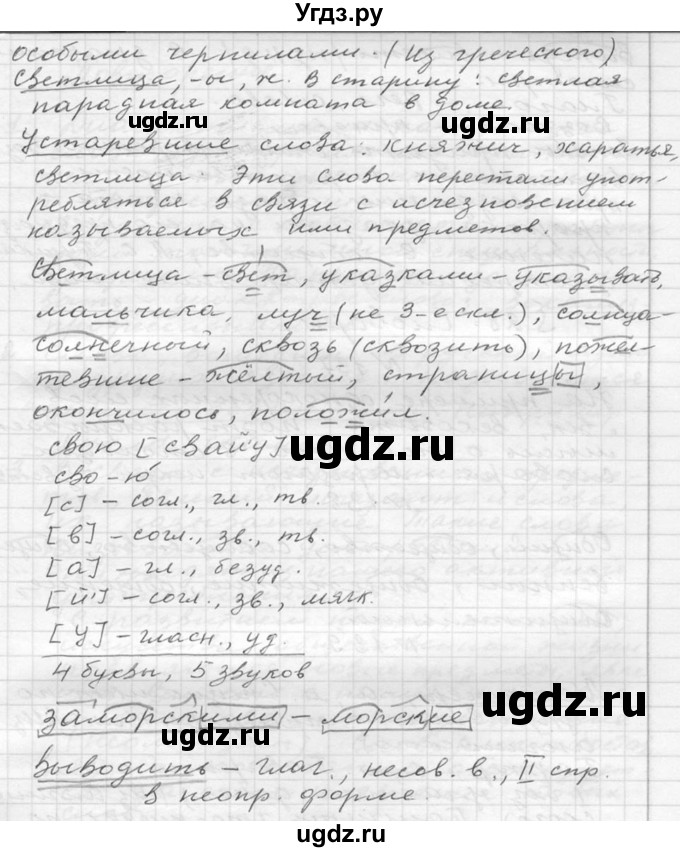 Угдз.ру
особыми чернилами. (Из греческого)
Светлица, -ы, ж. В старину: светлая
парадная комната в доме.
Устаревшие слова: княжич, харатья,
светлица. Эти слова перестали упот-
ребляться в связи с исчезновением
называемых ими предметов.
Светлица - свет, указками - указывать,
мальчика, луч (не 3-е скл.), солнца -
солнечный, сквозь (сквозить), пожел-
тевшие - жёлтый, страницы,
окончилось, положил.
свою [свайу]
сво-ю
[с] - согл., гл., тв.
[в] - согл., зв., тв.
[а] - гл., безуд.
[й'] - согл., зв., мягк.
[у] - гласн., уд.
4 буквы, 5 звуков
заморскими - морские
Выводить - глаг., несов. в., II спр.
в неопр. форме.
ugdz.ru
ugdz.ru
ugdz.ru
ugdz.ru
ugdz.ru
ugdz.ru
ugdz.ru
ugdz.ru
ugdz.ru